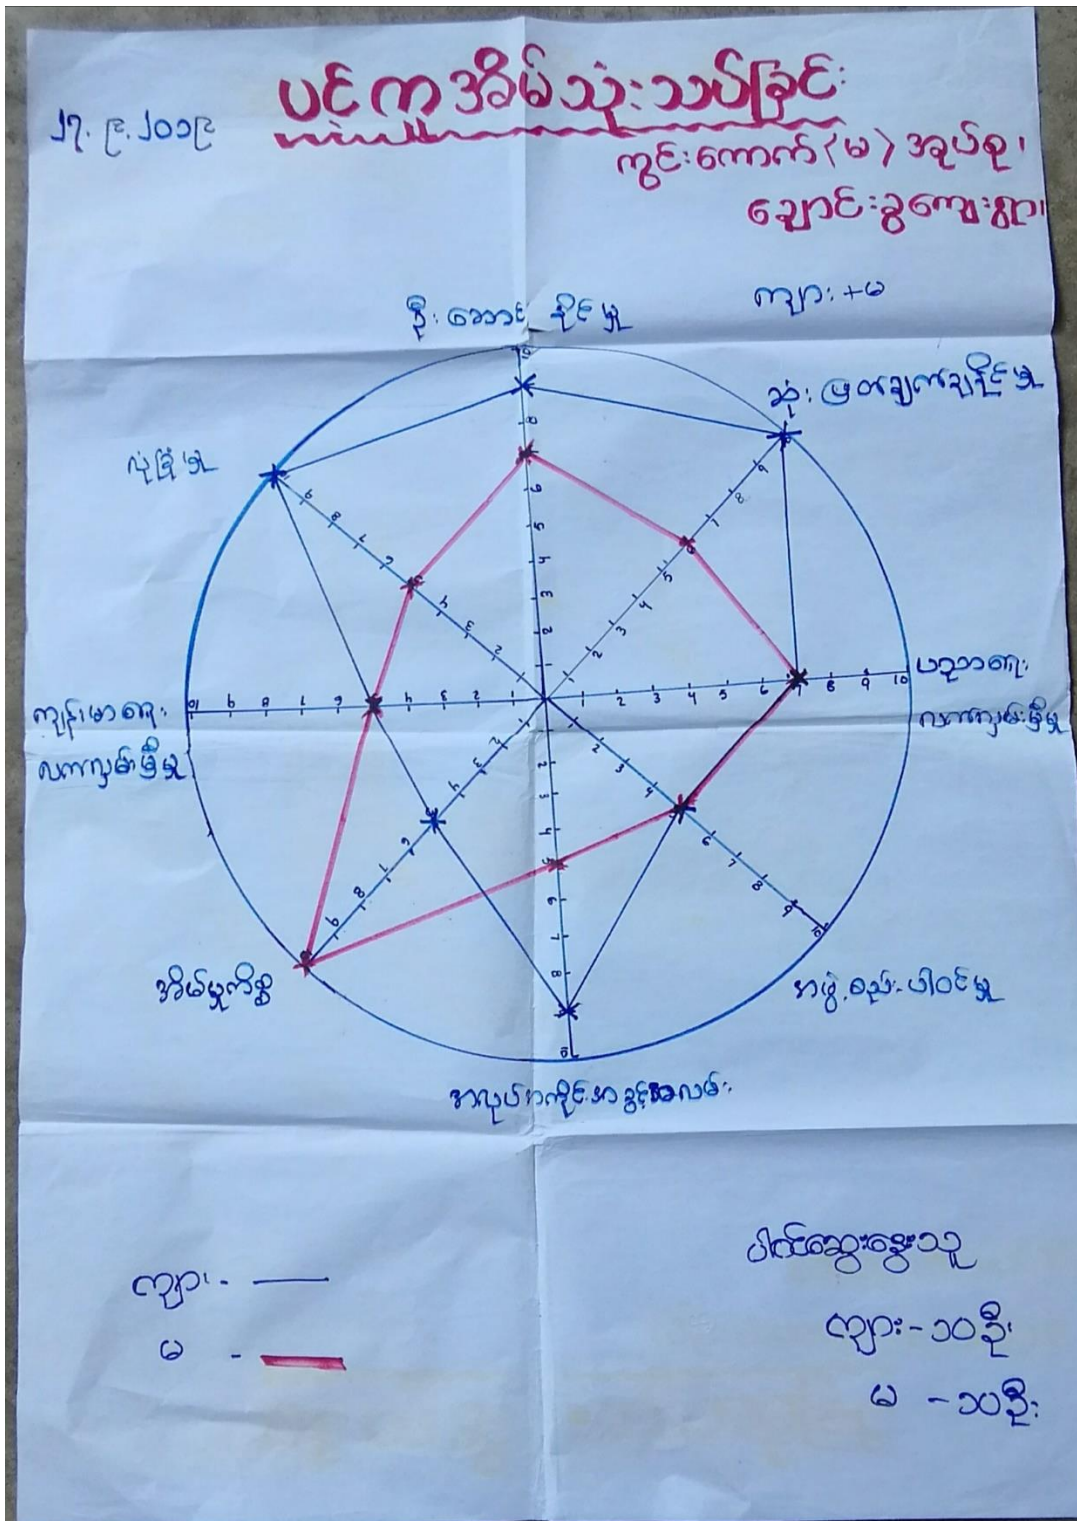 ၂၇.၉.၂၀၁၉
ပင့်ကူအိမ်သုံးသပ်ခြင်း
ကွင်းကောက်(မ)အုပ်စု၊
ချောင်းခွကျေးရွာ၊
ကျား+မ
ဦးဆောင်နိုင်မှု
ဆုံးဖြတ်ချက်ချနိုင်မှု
လုံခြုံမှု
ပညာရေး
လက်လှမ်းမှီမှု
ကျန်းမာရေး
လက်လှမ်းမှီမှု
အိမ်မှုကိစ္စ
အဖွဲ့စည်းပါဝင်မှု
အလုပ်အကိုင်အခွင့်အလမ်း
1 2 3 4 5 6 7 8 9 10
ပါဝင်ဆွေးနွေးသူ
ကျား-
ကျား-၁၀ဦး
မ -
မ -၁၀ဦး